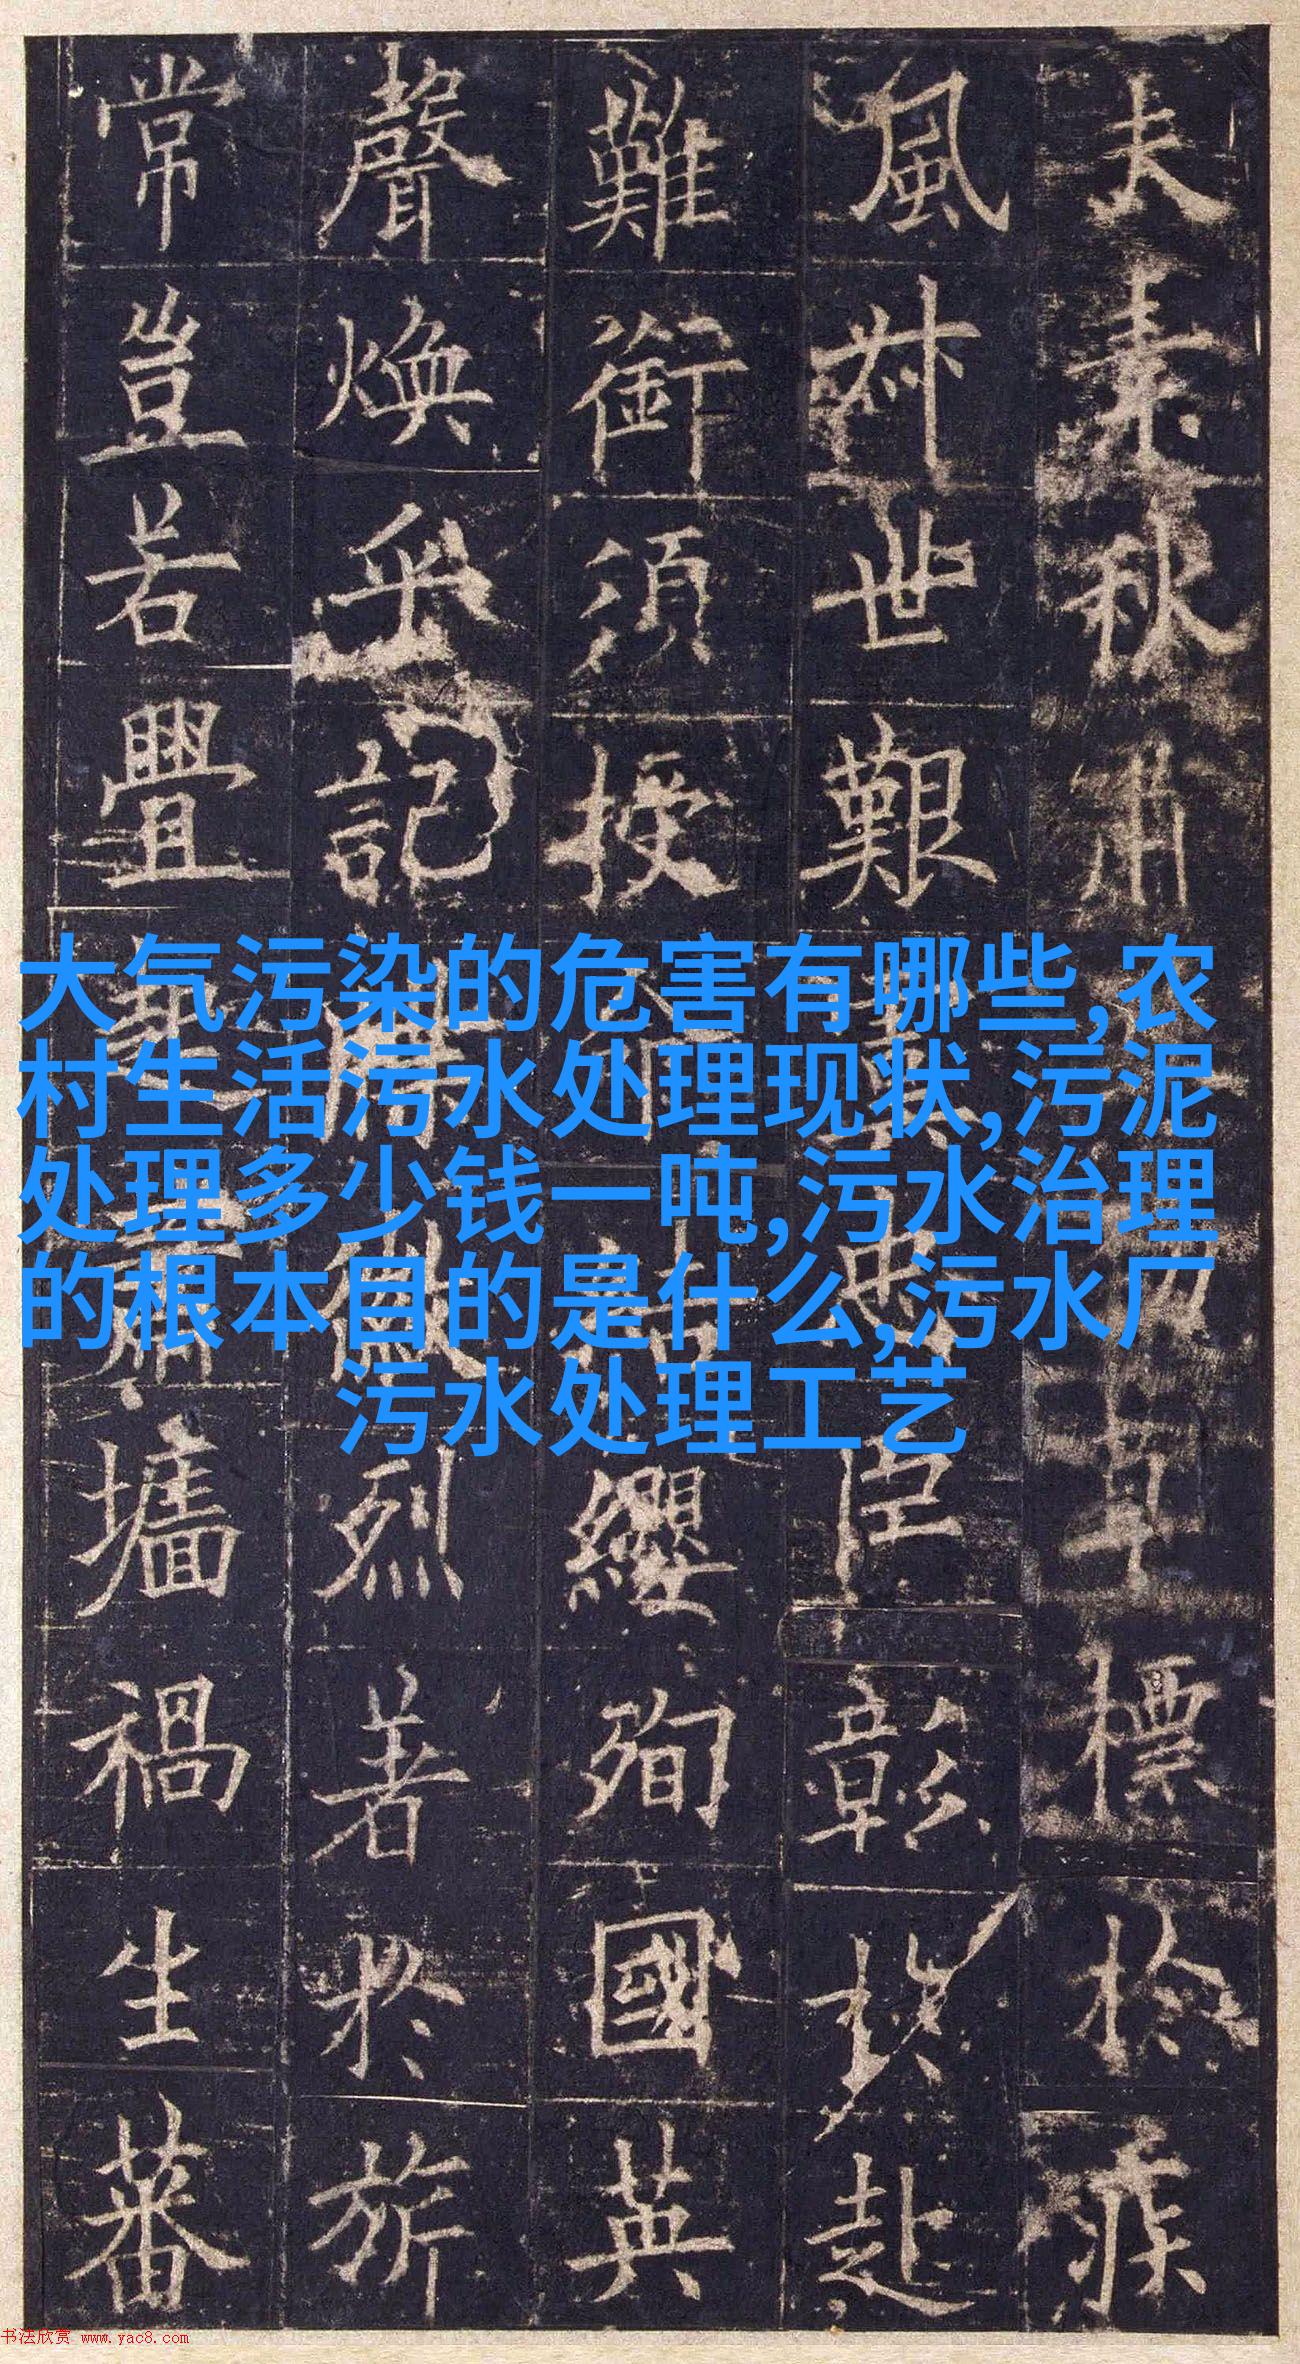 夫素秋肅草標於疾
風叔世艱臣彰於赴
難銜須授纓殉國英
聲煥乎記烈著於旂
常豈若釁墻禍生蕃
大气污染的危害有哪些,农
村生活污水处理现状,污泥
处理多少钱一吨,污水治理
的根本目的是什么,污水厂
污水处理工艺
书法欣赏 www.yac8.com